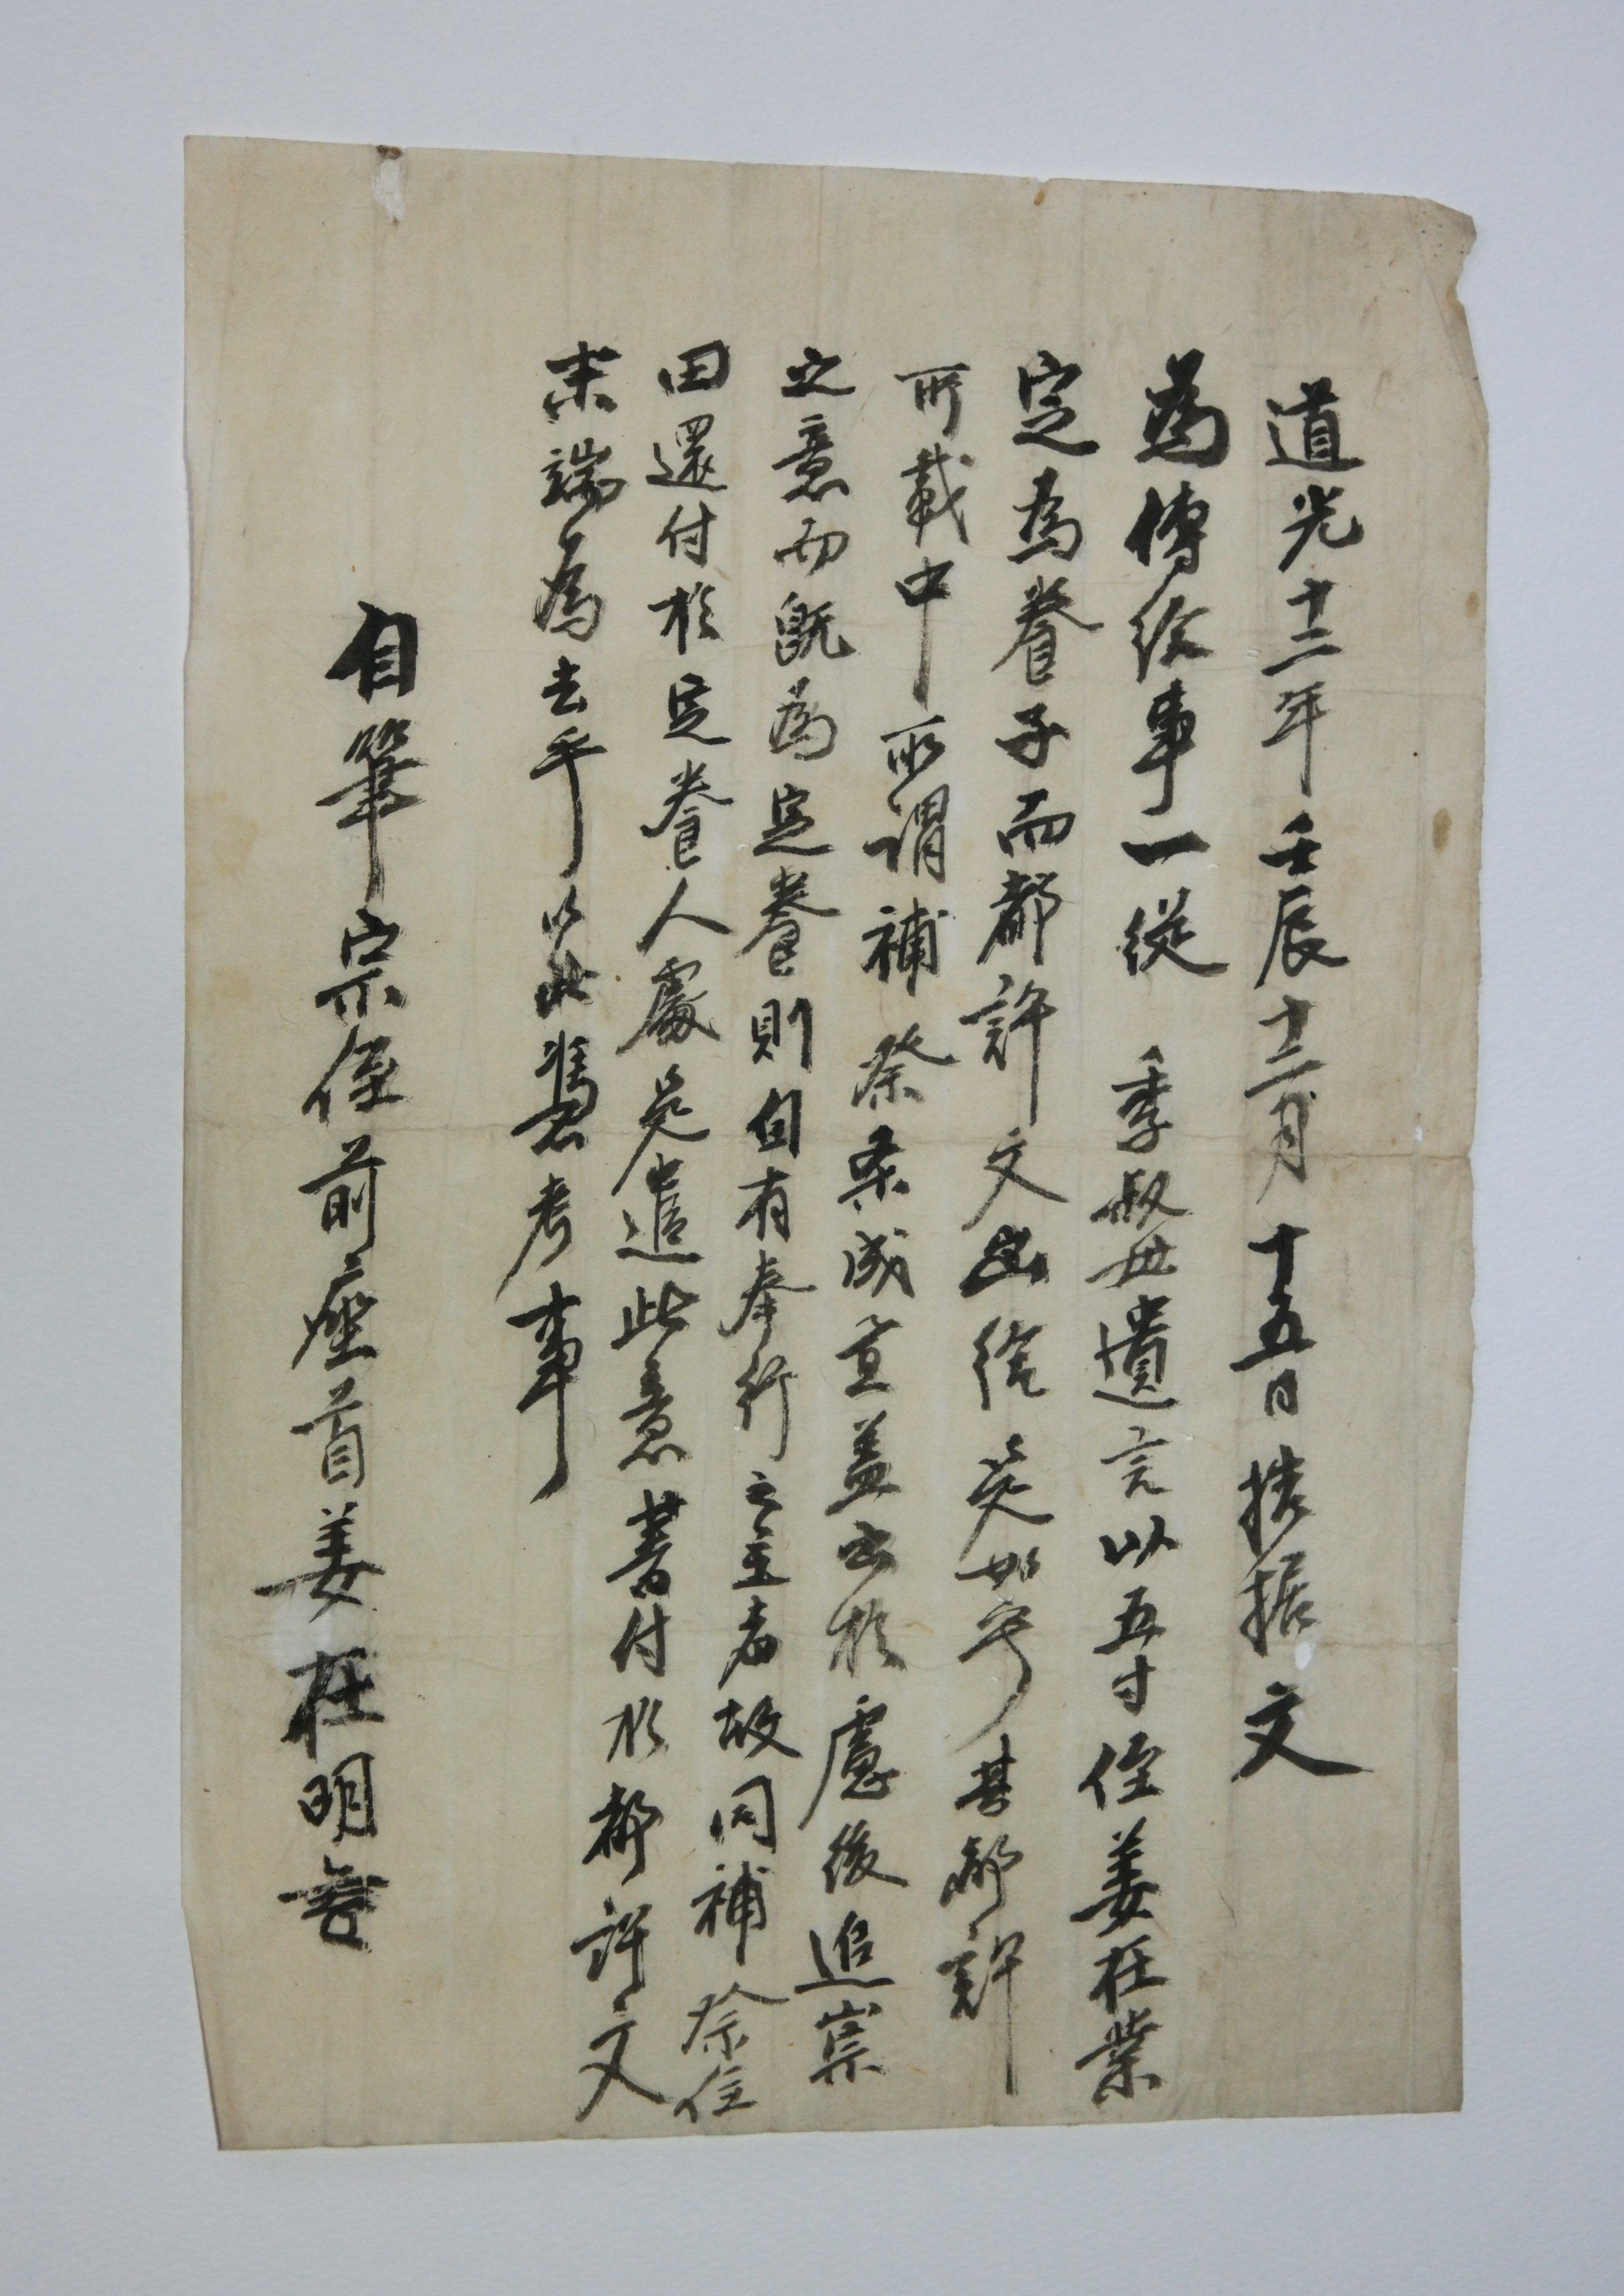 道光十二年壬辰十二月十五日據文
為傳給事一從 季叔母遺言以五寸侄姜在業
定為養子而都許文出給矣如乎其都許
所載中所謂補祭条成宣蓋出於慮後追崇
之意而旣為定養則自有奉行之主者故同補祭位
田還付於定養人處矣遣此意書付於都許文
末端為去乎以此憑考事
自筆宗侄前座首姜在明